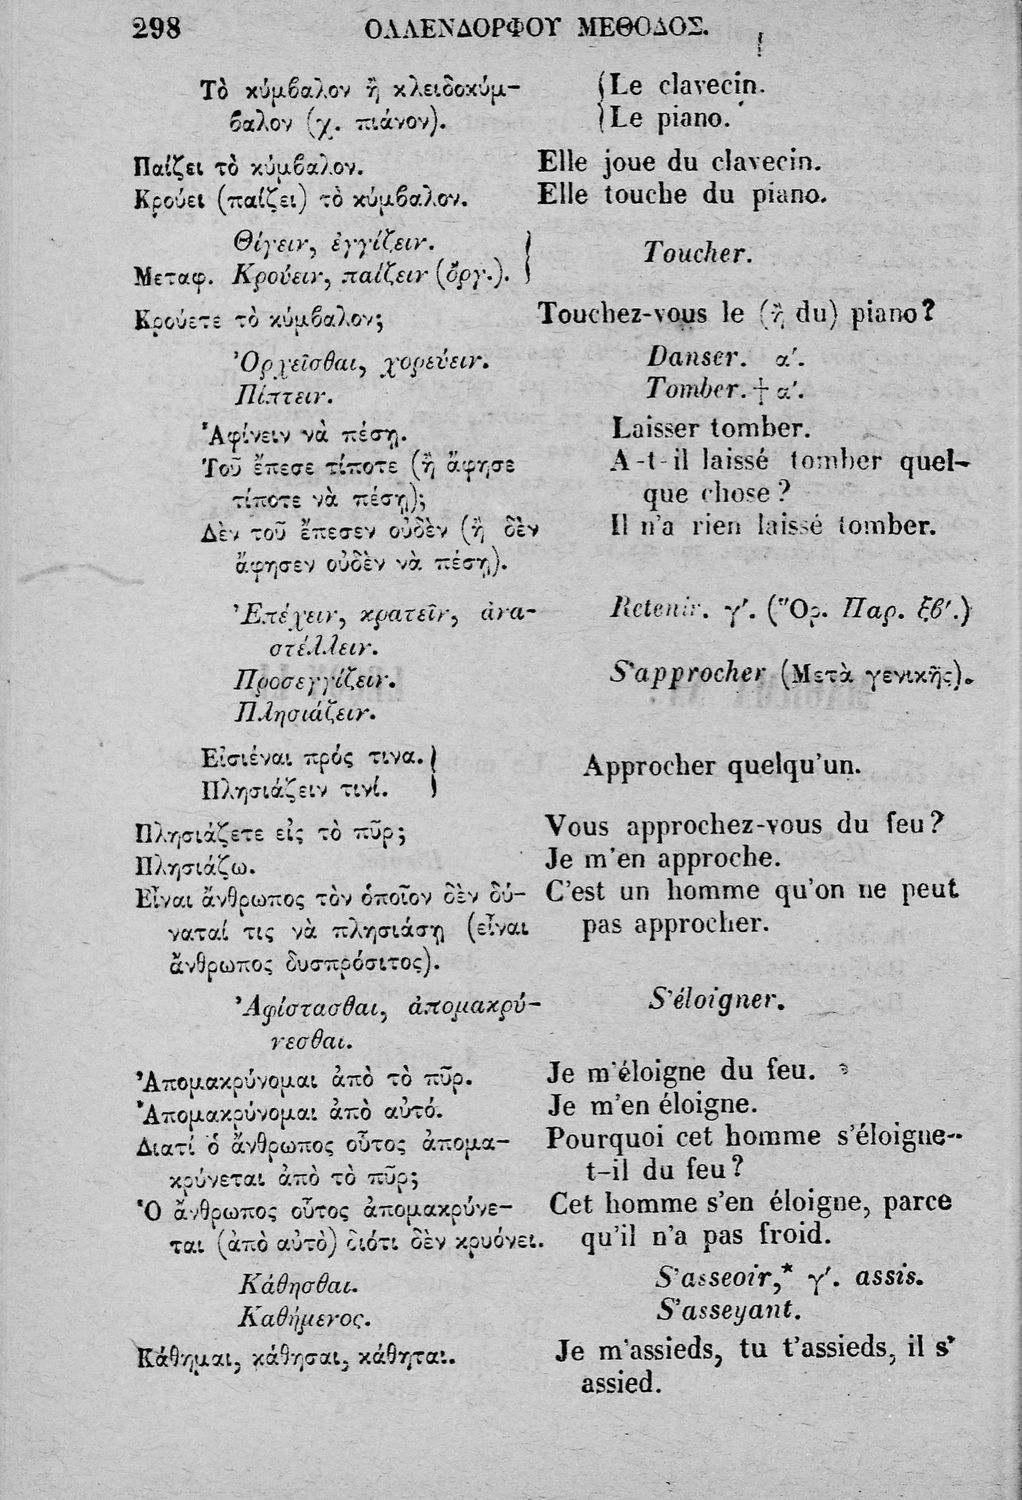 298 ΟΛΛΕΝΔΟΡΦΟΥ ΜΕΘΟΔΟΣ.
Τὸ κύμβαλον ἢ κλειδοκύμ- Le clavecin.
βαλον (χ. πιάνον). Le piano.
Παίζει τὸ κύμβαλον. Elle joue du clavecin.
Κρούει (παίζει) τὸ κύμβαλον. Elle touche du piano.
Θίγειν, ἐγγίζειν.
Μεταφ. Κρούειν, παίζειν (ὄργ.). Toucher.
Κρούετε τὸ κύμβαλον; Touchez-vous le (ἢ du) piano?
Ὀρχεῖσθαι, χορεύειν. Danser. α′.
Πίπτειν. Tomber. † α′.
Ἀφίνειν νὰ πέσῃ. Laisser tomber.
Τοῦ ἔπεσε τίποτε (ἢ ἄφησε A-t-il laissé tomber quel-
τίποτε νὰ πέσῃ); que chose?
Δὲν τοῦ ἔπεσεν οὐδὲν (ἢ δὲν Il n'a rien laissé tomber.
ἄφησεν οὐδὲν νὰ πέσῃ).
Ἐπέχειν, κρατεῖν, ἀνα- Retenir. γ′. (Ὅρ. Παρ. ξβ′.)
στέλλειν.
Προσεγγίζειν. S'approcher (Μετὰ γενικῆς).
Πλησιάζειν.
Εἰσιέναι πρός τινα.
Πλησιάζειν τινί. Approcher quelqu'un.
Πλησιάζετε εἰς τὸ πῦρ; Vous approchez-vous du feu?
Πλησιάζω. Je m'en approche.
Εἶναι ἄνθρωπος τὸν ὁποῖον δὲν δύ- C'est un homme qu'on ne peut
ναταί τις νὰ πλησιάσῃ (εἶναι pas approcher.
ἄνθρωπος δυσπρόσιτος).
Ἀφίστασθαι, ἀπομακρύ- S'éloigner.
νεσθαι.
Ἀπομακρύνομαι ἀπὸ τὸ πῦρ. Je m'éloigne du feu.
Ἀπομακρύνομαι ἀπὸ αὐτό. Je m'en éloigne.
Διατί ὁ ἄνθρωπος οὗτος ἀπομα- Pourquoi cet homme s'éloigne-
κρύνεται ἀπὸ τὸ πῦρ; t-il du feu?
Ὁ ἄνθρωπος οὗτος ἀπομακρύνε- Cet homme s'en éloigne, parce
ται (ἀπὸ αὐτὸ) διότι δὲν κρυόνει. qu'il n'a pas froid.
Κάθησθαι. S'asseoir,* γ′. assis.
Καθήμενος. S'asseyant.
Κάθημαι, κάθησαι, κάθηται. Je m'assieds, tu t'assieds, il s'
assied.